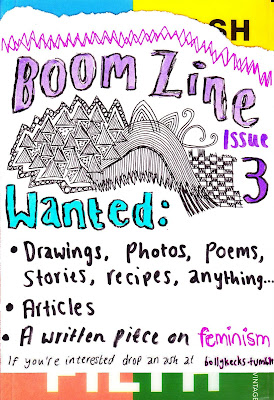 SH
BOOM Zine
Issue
3
Wanted:
• Drawings, Photos, Poems,
Stories, recipes, anything...
• Articles
• A written piece on feminism
If you're interested drop an ash at bollykecks.tumblr
FILTH
VINTAGE